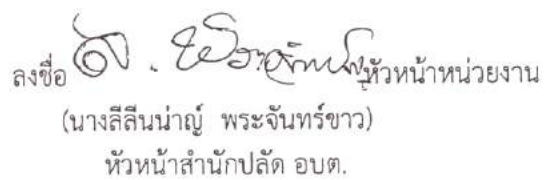 ลงชื่อ หัวหน้าหน่วยงาน
(นางลีลีนน่าญ์ พระจันทร์ขาว)
หัวหน้าสำนักปลัด อบต.